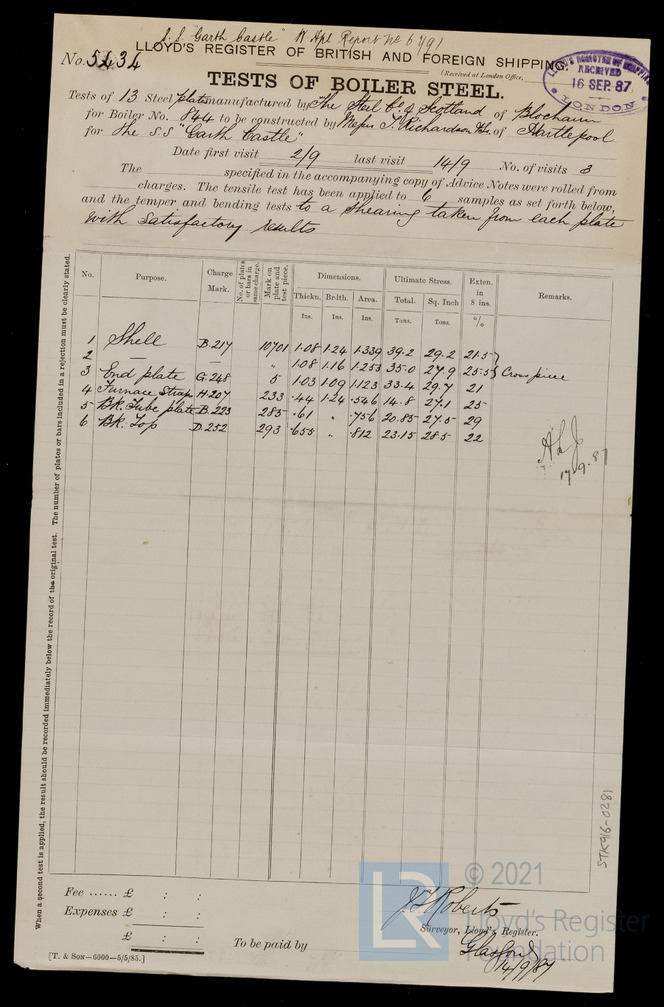 S.S. "Garth Castle" W. Hpl Report No 6791
No. 5434
LLOYD'S REGISTER OF BRITISH AND FOREIGN SHIPPING.
(Received at London Office,
LLOYD'S REGISTER OF SHIPPING
RECEIVED
16 SEP. 87
LONDON
TESTS OF BOILER STEEL.
Tests of 13 Steel plates manufactured by The Steel Co. of Scotland of Blochairn
for Boiler No. 844 to be constructed by Messrs T. Richardson & Sons of Hartlepool
for the S.S "Garth Castle"
Date first visit 2/9 last visit 14/9 No. of visits 3
The specified in the accompanying copy of Advice Notes were rolled from
charges. The tensile test has been applied to 6 samples as set forth below,
and the temper and bending tests to a shearing taken from each plate
with satisfactory results
No. Purpose. Charge Mark. No. of plates or bars in same charge. Mark on plate and test piece. Dimensions. Ultimate Stress. Exten. in 8 ins. Remarks.
Thickn. Brdth. Area. Total. Sq. Inch
Ins. Ins. Ins. Tons. Tons. %
1 Shell B.217 10701 1.08 1.24 1.339 39.2 29.2 21.5
2 — — " 1.08 1.16 1.253 35.0 27.9 25.5 } Cross piece
3 End plate G.248 5 1.03 1.09 1.123 33.4 29.7 21
4 Furnace Strap H.207 233 .44 1.24 .546 14.8 27.1 25
5 Bk. Tube plate B.223 285 .61 " .756 20.85 27.5 29
6 Bk. Top D.252 293 .655 " .812 23.15 28.5 22
17.9.87
When a second test is applied, the result should be recorded immediately below the record of the original test. The number of plates or bars included in a rejection must be clearly stated.
STK916-0281
Fee ...... £ : :
Expenses £ : :
£ : :
To be paid by
J T Roberts
Surveyor, Lloyd's Register.
Glasgow
14/9/87
[T. & SON—6000—5/5/85.]
LR © 2021
Lloyd's Register
Foundation